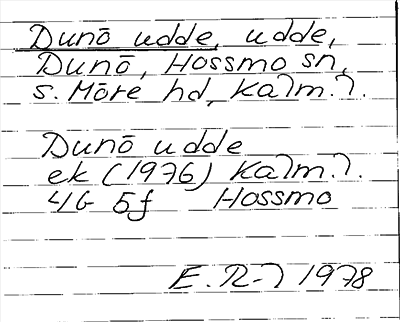 Dunō udde, udde,
Dunō, Hossmo sn,
S. Möre hd, Kalm. l.
Dunō udde
ek (1976) Kalm. l.
4G 5f Hossmo
E. R-l 1978